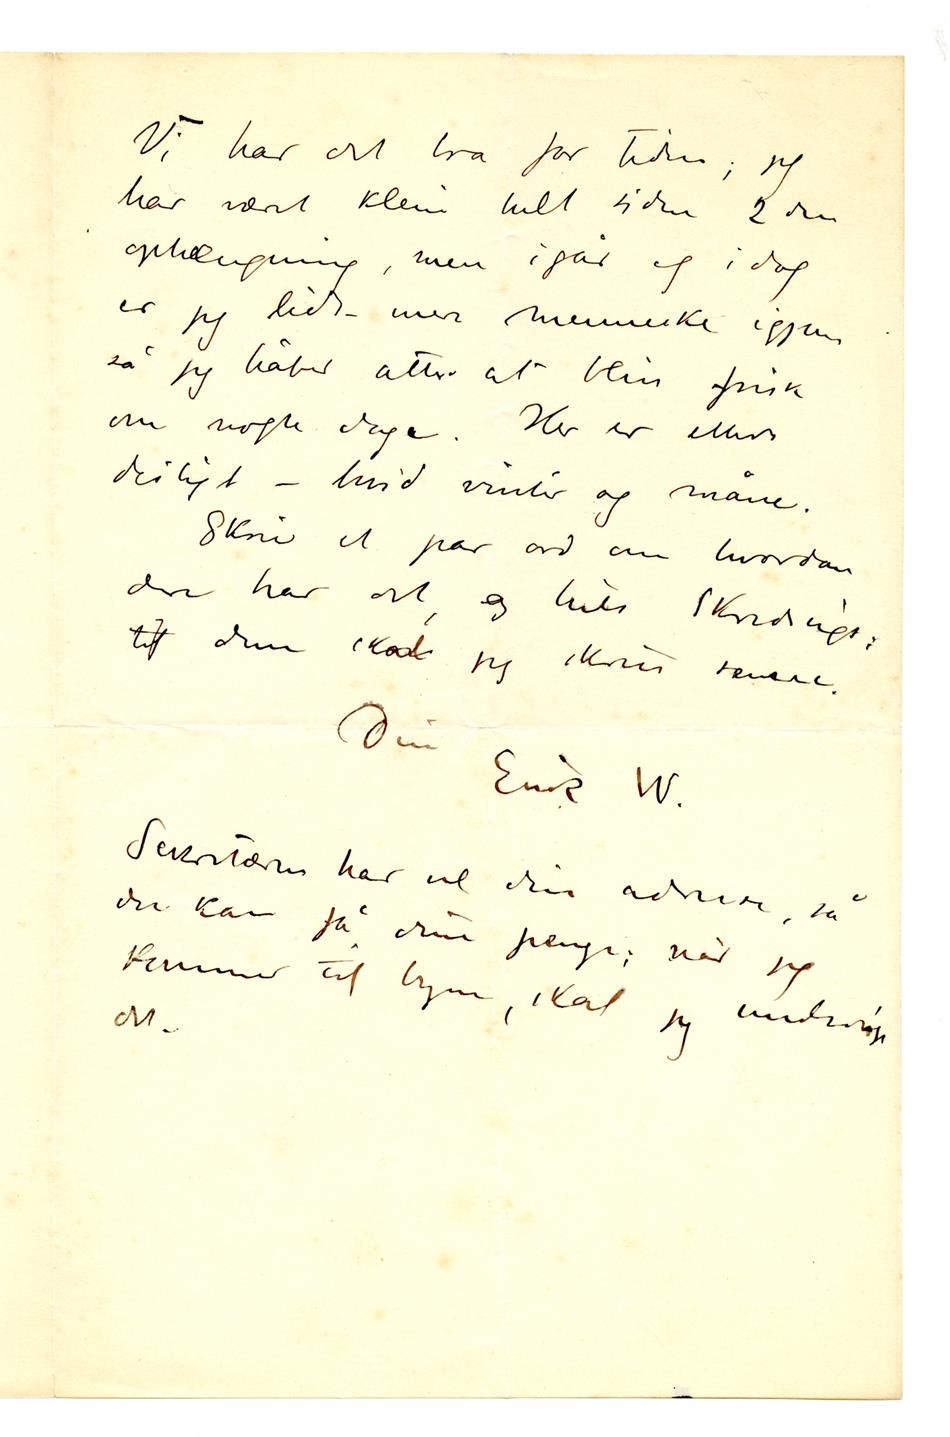 Vi har det bra for tiden; jeg
har været klein helt siden 2den
ophængning, men igår og idag
er jeg lidt mer menneske igjen
så jeg håber atter at bliv frisk
om nogle dage. Her er ellers
deiligt – hvid vinter og måne.
Skriv et par ord om hvordan
dere har det, og hils Skredsvigs;
til dem skal jeg skrive senere.
Din
Erik W.
Sekretæren har vel din adresse, så
du kan få dine penge; når jeg
kommer til byen, skal jeg undersøge
det.